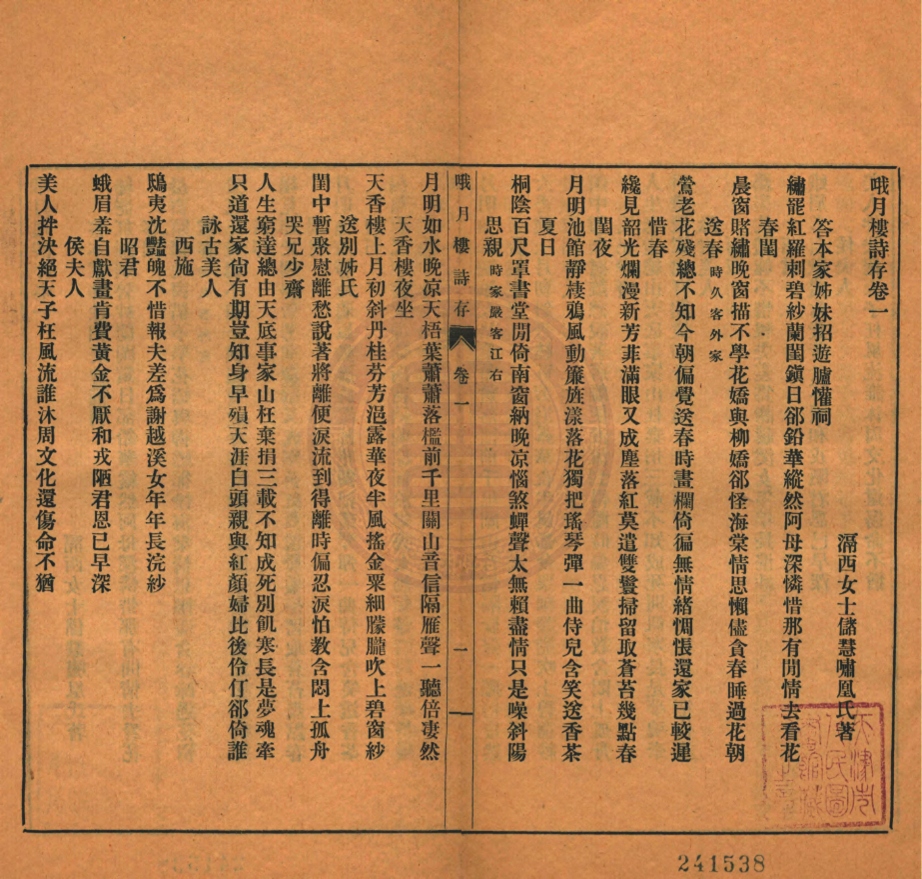 哦月樓詩存卷一
滆西女士儲慧嘯凰氏著
答本家姊妹招遊臚懽祠
繡罷紅羅刺碧紗蘭閨鎭日郤鉛華縱然阿母深憐惜那有閒情去看花
春閨
晨窗賭繡晚窗描不學花嬌與柳嬌郤怪海棠情思懶儘貪春睡過花朝
送春時久客外家
鶯老花殘總不知今朝偏覺送春時畫欄倚徧無情緒惆悵還家已較遲
惜春
纔見韶光爛漫新芳菲滿眼又成塵落紅莫遣雙鬟掃留取蒼苔幾點春
閨夜
月明池館靜棲鴉風動簾旌漾落花獨把瑤琴彈一曲侍兒含笑送香茶
夏日
桐陰百尺罩書堂閒倚南窗納晚凉惱煞蟬聲太無賴盡情只是噪斜陽
思親時家嚴客江右
哦月樓詩存
卷一
一
月明如水晚凉天梧葉蕭蕭落檻前千里關山音信隔雁聲一聽倍凄然
天香樓夜坐
天香樓上月初斜丹桂芬芳浥露華夜半風搖金粟細朦朧吹上碧窗紗
送別姊氏
閨中暫聚慰離愁說著將離便淚流到得離時偏忍淚怕教含悶上孤舟
哭兄少齋
人生窮達總由天底事家山枉棄捐三載不知成死別飢寒長是夢魂牽
只道還家尙有期豈知身早殞天涯白頭親與紅顏婦比後伶仃郤倚誰
詠古美人
西施
鴟夷沈豔魄不惜報夫差爲謝越溪女年年長浣紗
昭君
蛾眉羞自獻畫肯費黃金不厭和戎陋君恩已早深
侯夫人
美人拌決絕天子枉風流誰沐周文化還傷命不猶
天津市人民圖書館藏
241538